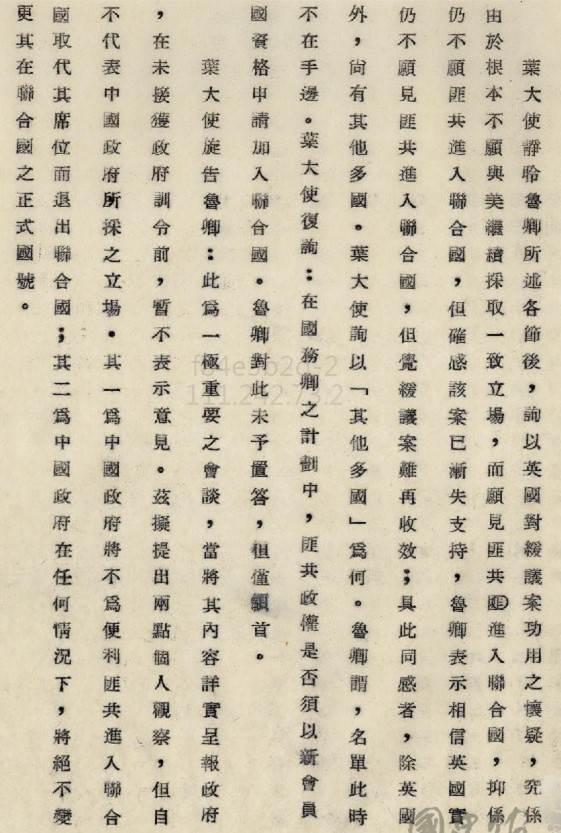 葉大使靜聆魯卿所述各節後，詢以英國對緩議案功用之懷疑，究係
由於根本不願與美繼續採取一致立場，而願見匪共匪進入聯合國，抑係
仍不願匪共進入聯合國，但確感該案已漸失支持，魯卿表示相信英國實
仍不願見匪共進入聯合國，但覺緩議案難再收效；具此同感者，除英國
外，尙有其他多國。葉大使詢以「其他多國」爲何。魯卿謂，名單此時
不在手邊。葉大使復詢：在國務卿之計劃中，匪共政權是否須以新會員
國資格申請加入聯合國。魯卿對此未予置答，但僅頷首。
葉大使旋告魯卿：此爲一極重要之會談，當將其內容詳實呈報政府
，在未接獲政府訓令前，暫不表示意見。茲擬提出兩點個人觀察，但自
不代表中國政府所採之立場。其一爲中國政府將不爲便利匪共進入聯合
國取代其席位而退出聯合國；其二爲中國政府在任何情況下，將絕不變
更其在聯合國之正式國號。
f84e5b2d-2
111.242.73.2